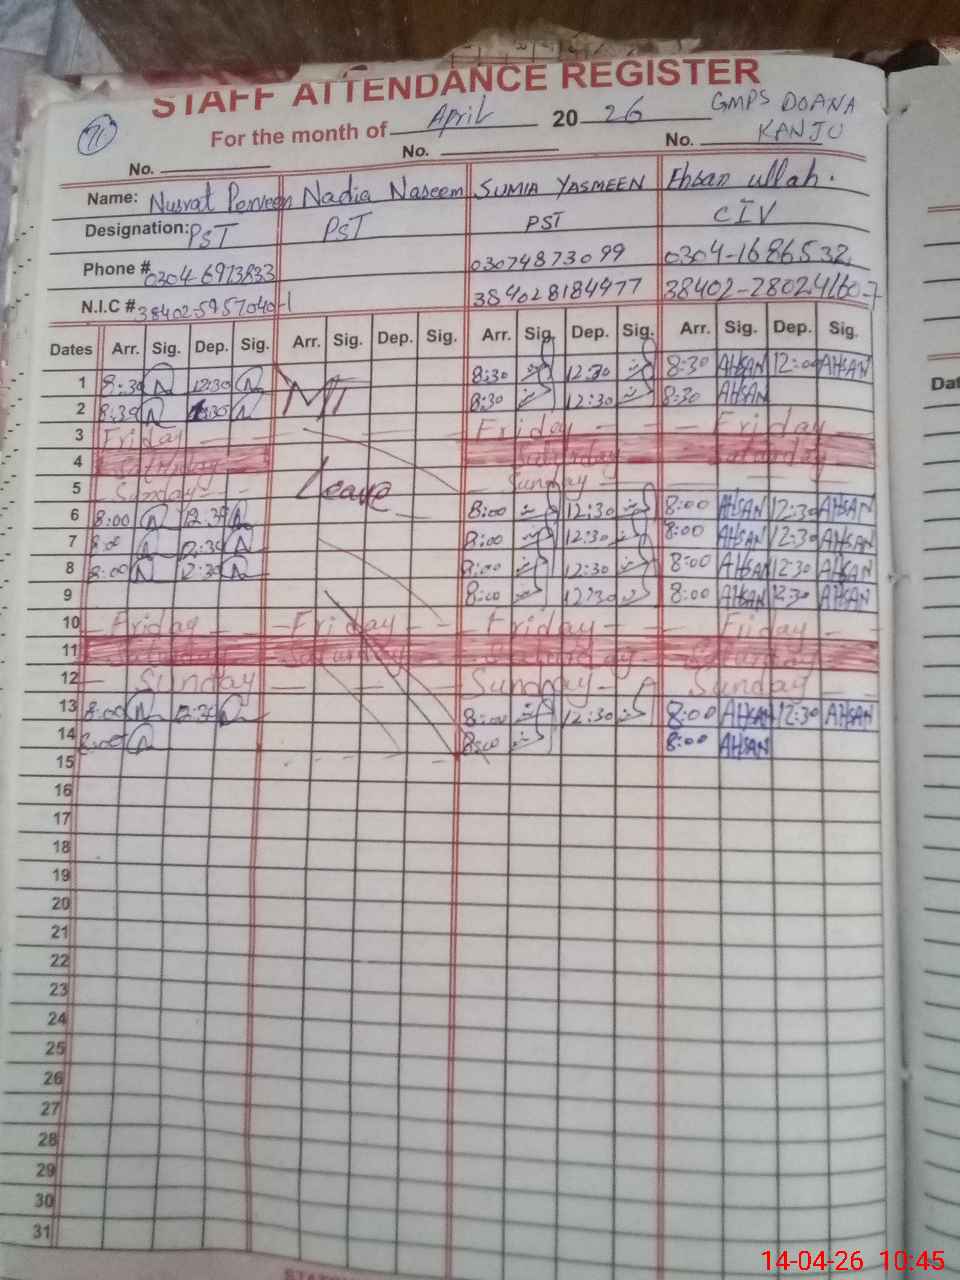 STAFF ATTENDANCE REGISTER
71 For the month of April 20 26 GMPS DOANA KANJU
No. No. No.
Name: Nusrat Perveen Nadia Naseem SUMIA YASMEEN Ehsan ullah.
Designation: PST PST PST CIV
Phone # 0304-6973833 03074873099 0304-1686532
N.I.C # 38402-5957040-1 384028184977 38402-28024160-7
Dates Arr. Sig. Dep. Sig. Arr. Sig. Dep. Sig. Arr. Sig. Dep. Sig. Arr. Sig. Dep. Sig.
1 8:30 12:30 8:30 12:30 8:30 AHSAN 12:00 AHSAN
2 8:30 8:30 12:30 8:30 AHSAN
3 Friday Friday Friday
4 Saturday Saturday Saturday
5 Sunday Leave Sunday
6 8:00 12:30 8:00 12:30 8:00 AHSAN 12:30 AHSAN
7 8:00 12:30 8:00 12:30 8:00 AHSAN 12:30 AHSAN
8 8:00 12:30 8:00 12:30 8:00 AHSAN 12:30 AHSAN
9 8:00 12:30 8:00 AHSAN 12:30 AHSAN
10 Friday Friday Friday Friday
11 Saturday Saturday Saturday Saturday
12 Sunday Sunday Sunday
13 8:00 12:30 8:00 12:30 8:00 AHSAN 12:30 AHSAN
14 8:00 8:00 8:00 AHSAN
15
16
17
18
19
20
21
22
23
24
25
26
27
28
29
30
31
14-04-26 10:45